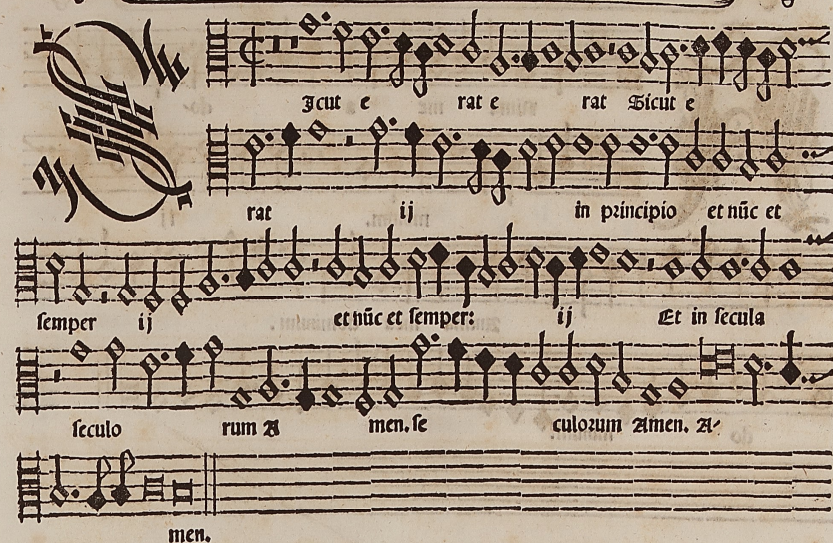 SIcut e rat e rat Sicut e
rat ij in principio et nũc et
semper ij et nũc et semper: ij Et in secula
seculo rum A men. se culorum Amen. A-
men.